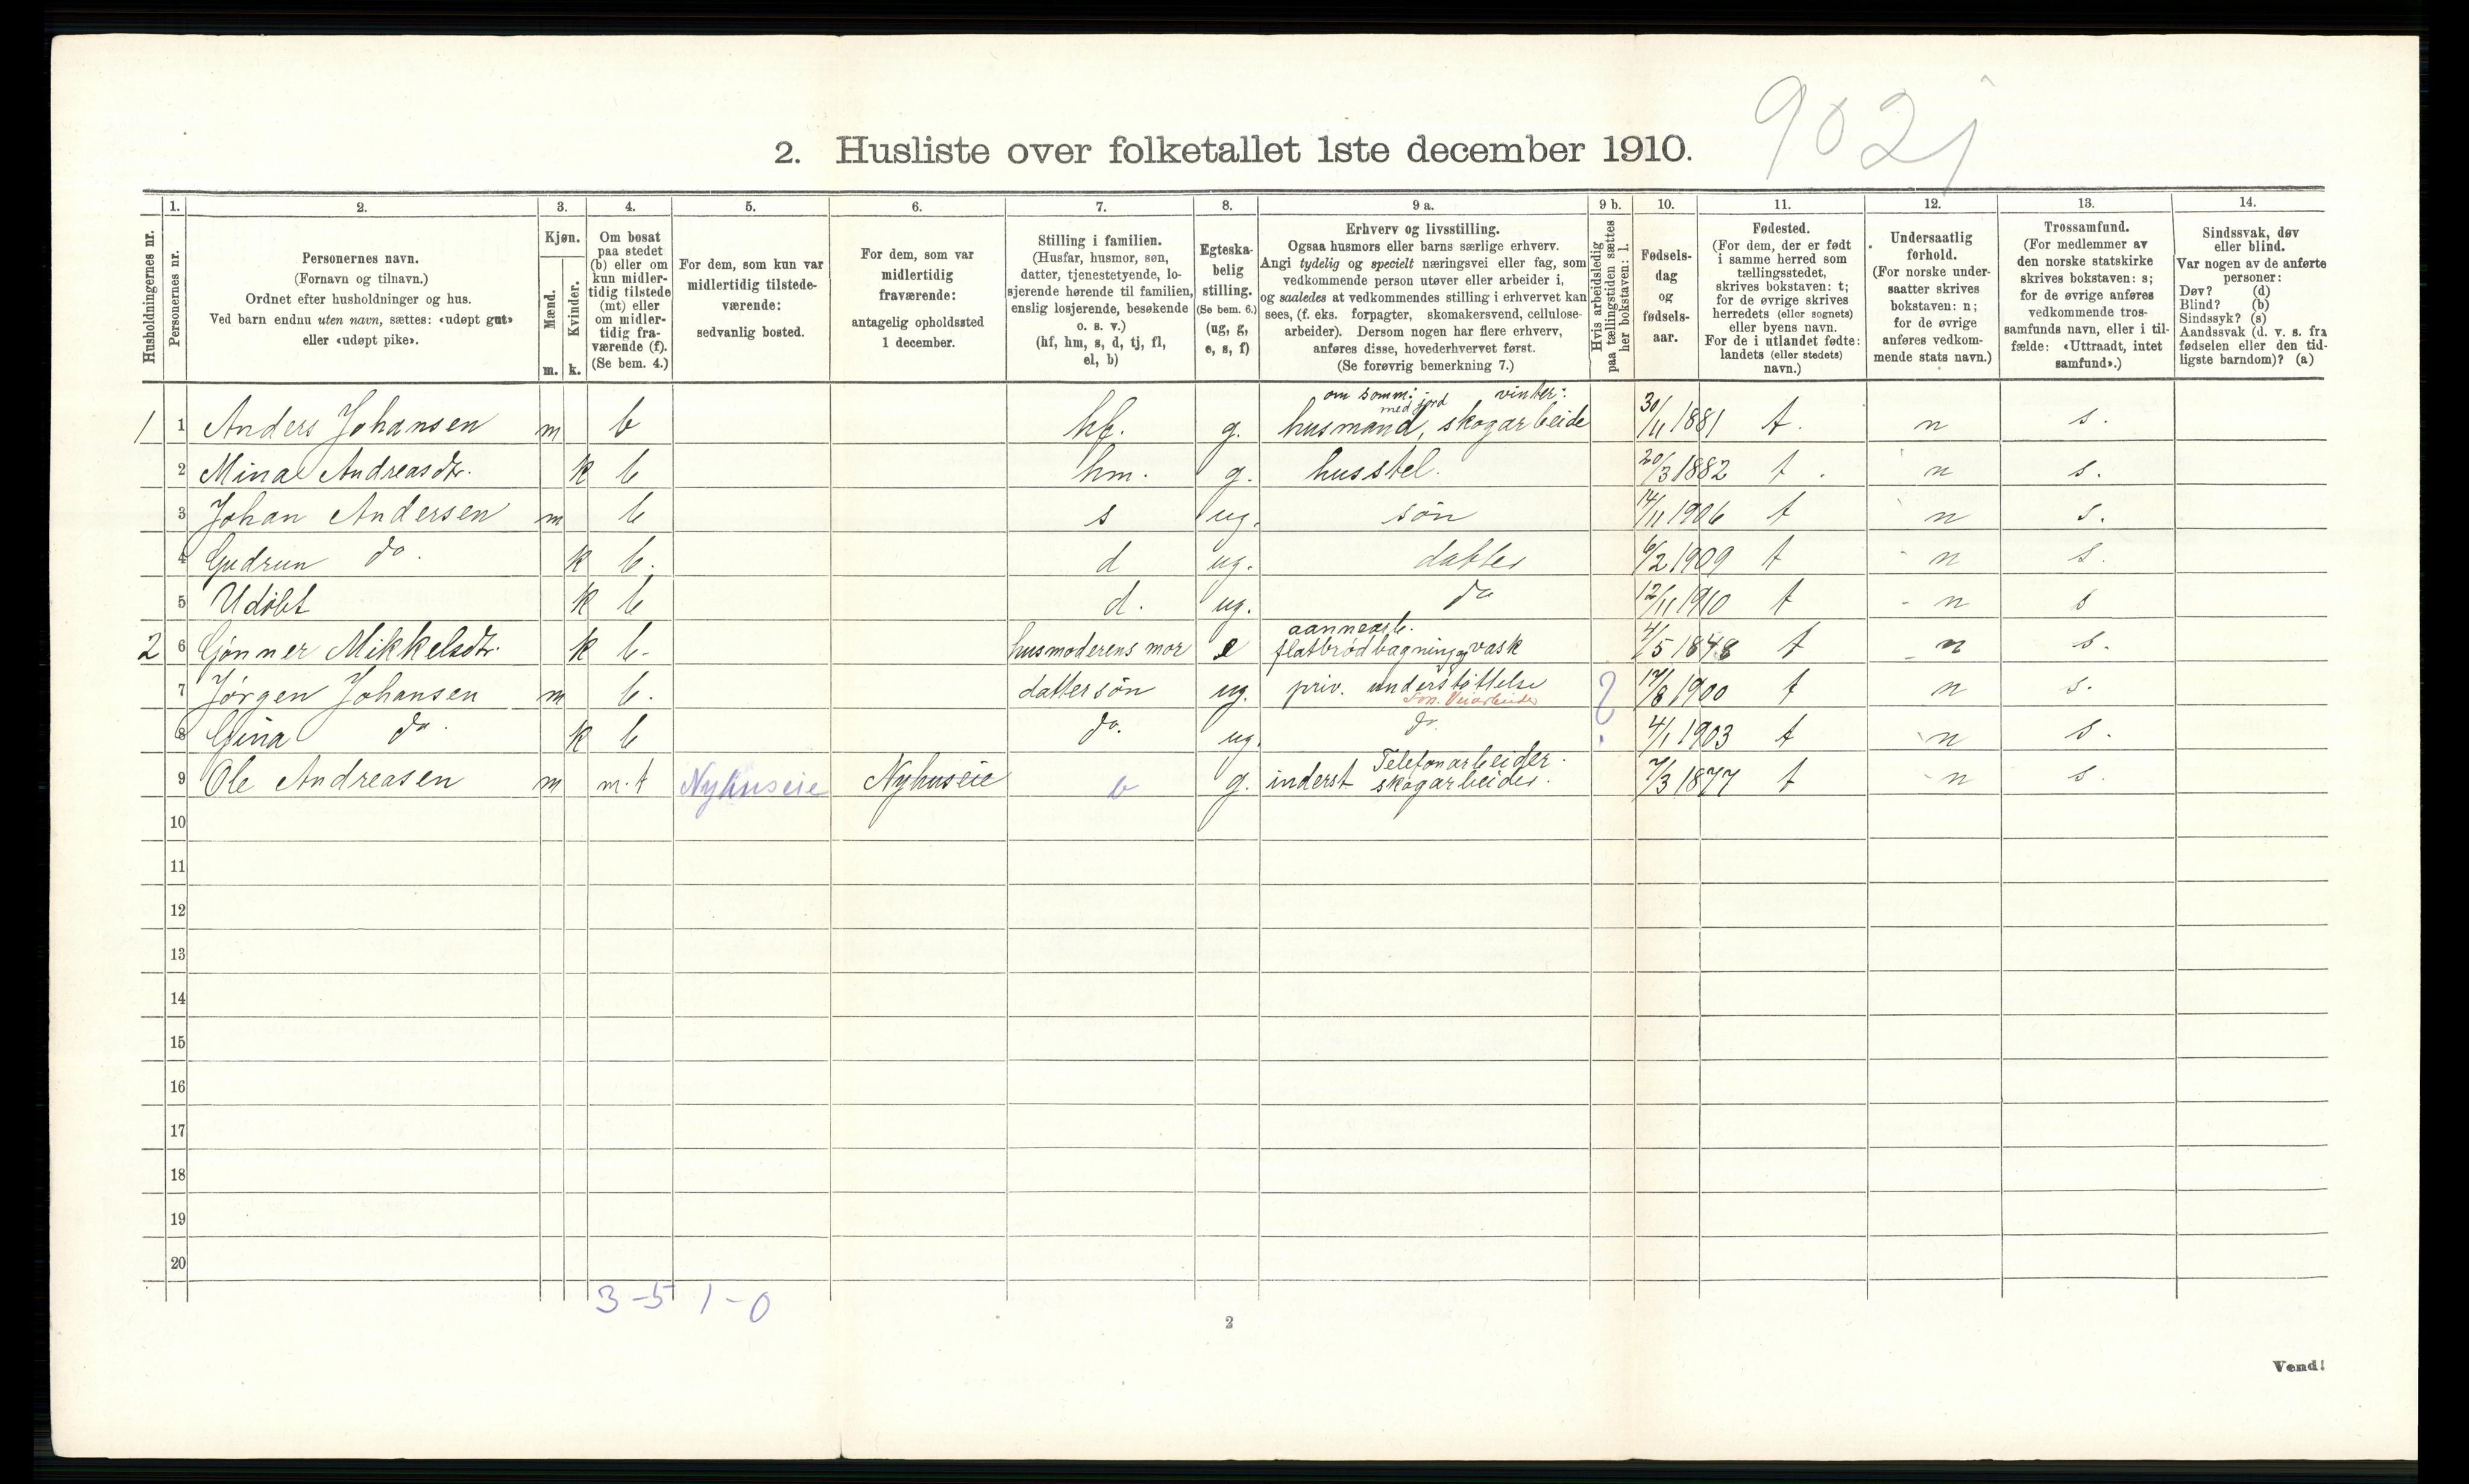 902j
2. Husliste over folketallet 1ste december 1910.
Husholdningernes nr.
1. Personernes nr.
2. Personernes navn. (Fornavn og tilnavn.) Ordnet efter husholdninger og hus. Ved barn endnu uten navn, sættes: «udøpt gut» eller «udøpt pike».
3. Kjøn. Mænd. m. Kvinder. k.
4. Om bosat paa stedet (b) eller om kun midlertidig tilstede (mt) eller om midlertidig fraværende (f). (Se bem. 4.)
5. For dem, som kun var midlertidig tilstedeværende: sedvanlig bosted.
6. For dem, som var midlertidig fraværende: antagelig opholdssted 1 december.
7. Stilling i familien. (Husfar, husmor, søn, datter, tjenestetyende, losjerende hørende til familien, enslig losjerende, besøkende o. s. v.) (hf, hm, s, d, tj, fl, el, b)
8. Egteskabelig stilling. (Se bem. 6.) (ug, g, e, s, f)
9 a. Erhverv og livsstilling. Ogsaa husmors eller barns særlige erhverv. Angi tydelig og specielt næringsvei eller fag, som vedkommende person utøver eller arbeider i, og saaledes at vedkommendes stilling i erhvervet kan sees, (f. eks. forpagter, skomakersvend, cellulosearbeider). Dersom nogen har flere erhverv, anføres disse, hovederhvervet først. (Se forøvrig bemerkning 7.)
9 b. Hvis arbeidsledig paa tællingstiden sættes her bokstaven: l.
10. Fødselsdag og fødselsaar.
11. Fødested. (For dem, der er født i samme herred som tællingsstedet, skrives bokstaven: t; for de øvrige skrives herredets (eller sognets) eller byens navn. For de i utlandet fødte: landets (eller stedets) navn.)
12. Undersaatlig forhold. (For norske undersaatter skrives bokstaven: n; for de øvrige anføres vedkommende stats navn.)
13. Trossamfund. (For medlemmer av den norske statskirke skrives bokstaven: s; for de øvrige anføres vedkommende trossamfunds navn, eller i tilfælde: «Uttraadt, intet samfund».)
14. Sindssvak, døv eller blind. Var nogen av de anførte personer: Døv? (d) Blind? (b) Sindssyk? (s) Aandssvak (d. v. s. fra fødselen eller den tidligste barndom)? (a)
om somm: med jord vinter:
1 1 Anders Johansen m b hf. g. husmand, skogarbeide 30/11 1881 t. n s.
2 Mina Andreasdtr. k b hm. g. husstel. 20/3 1882 t. n s.
3 Johan Andersen m b s ug. søn 14/11 1906 t n s.
4 Gudrun do. k b. d ug. datter 6/2 1909 t n s.
5 Udøbt k b d. ug. do 12/11 1910 t n s
2 6 Gønner Mikkelsdtr. k b. husmoderens mor e flatbrødbagning og vask 4/5 1848 t n s.
7 Jørgen Johansen m b. dattersøn ug. priv. understøttelse 17/8 1900 t n s.
8 Gina do. k b do. ug. do. 4/1 1903 t n s.
Telefonarbeider.
9 Ole Andreasen m m.t Nyhuseie Nyhuseie b g. inderst skogarbeider. 7/3 1877 t n s.
10
11
12
13
14
15
16
17
18
19
20
3-5 1-0
2
Vend!